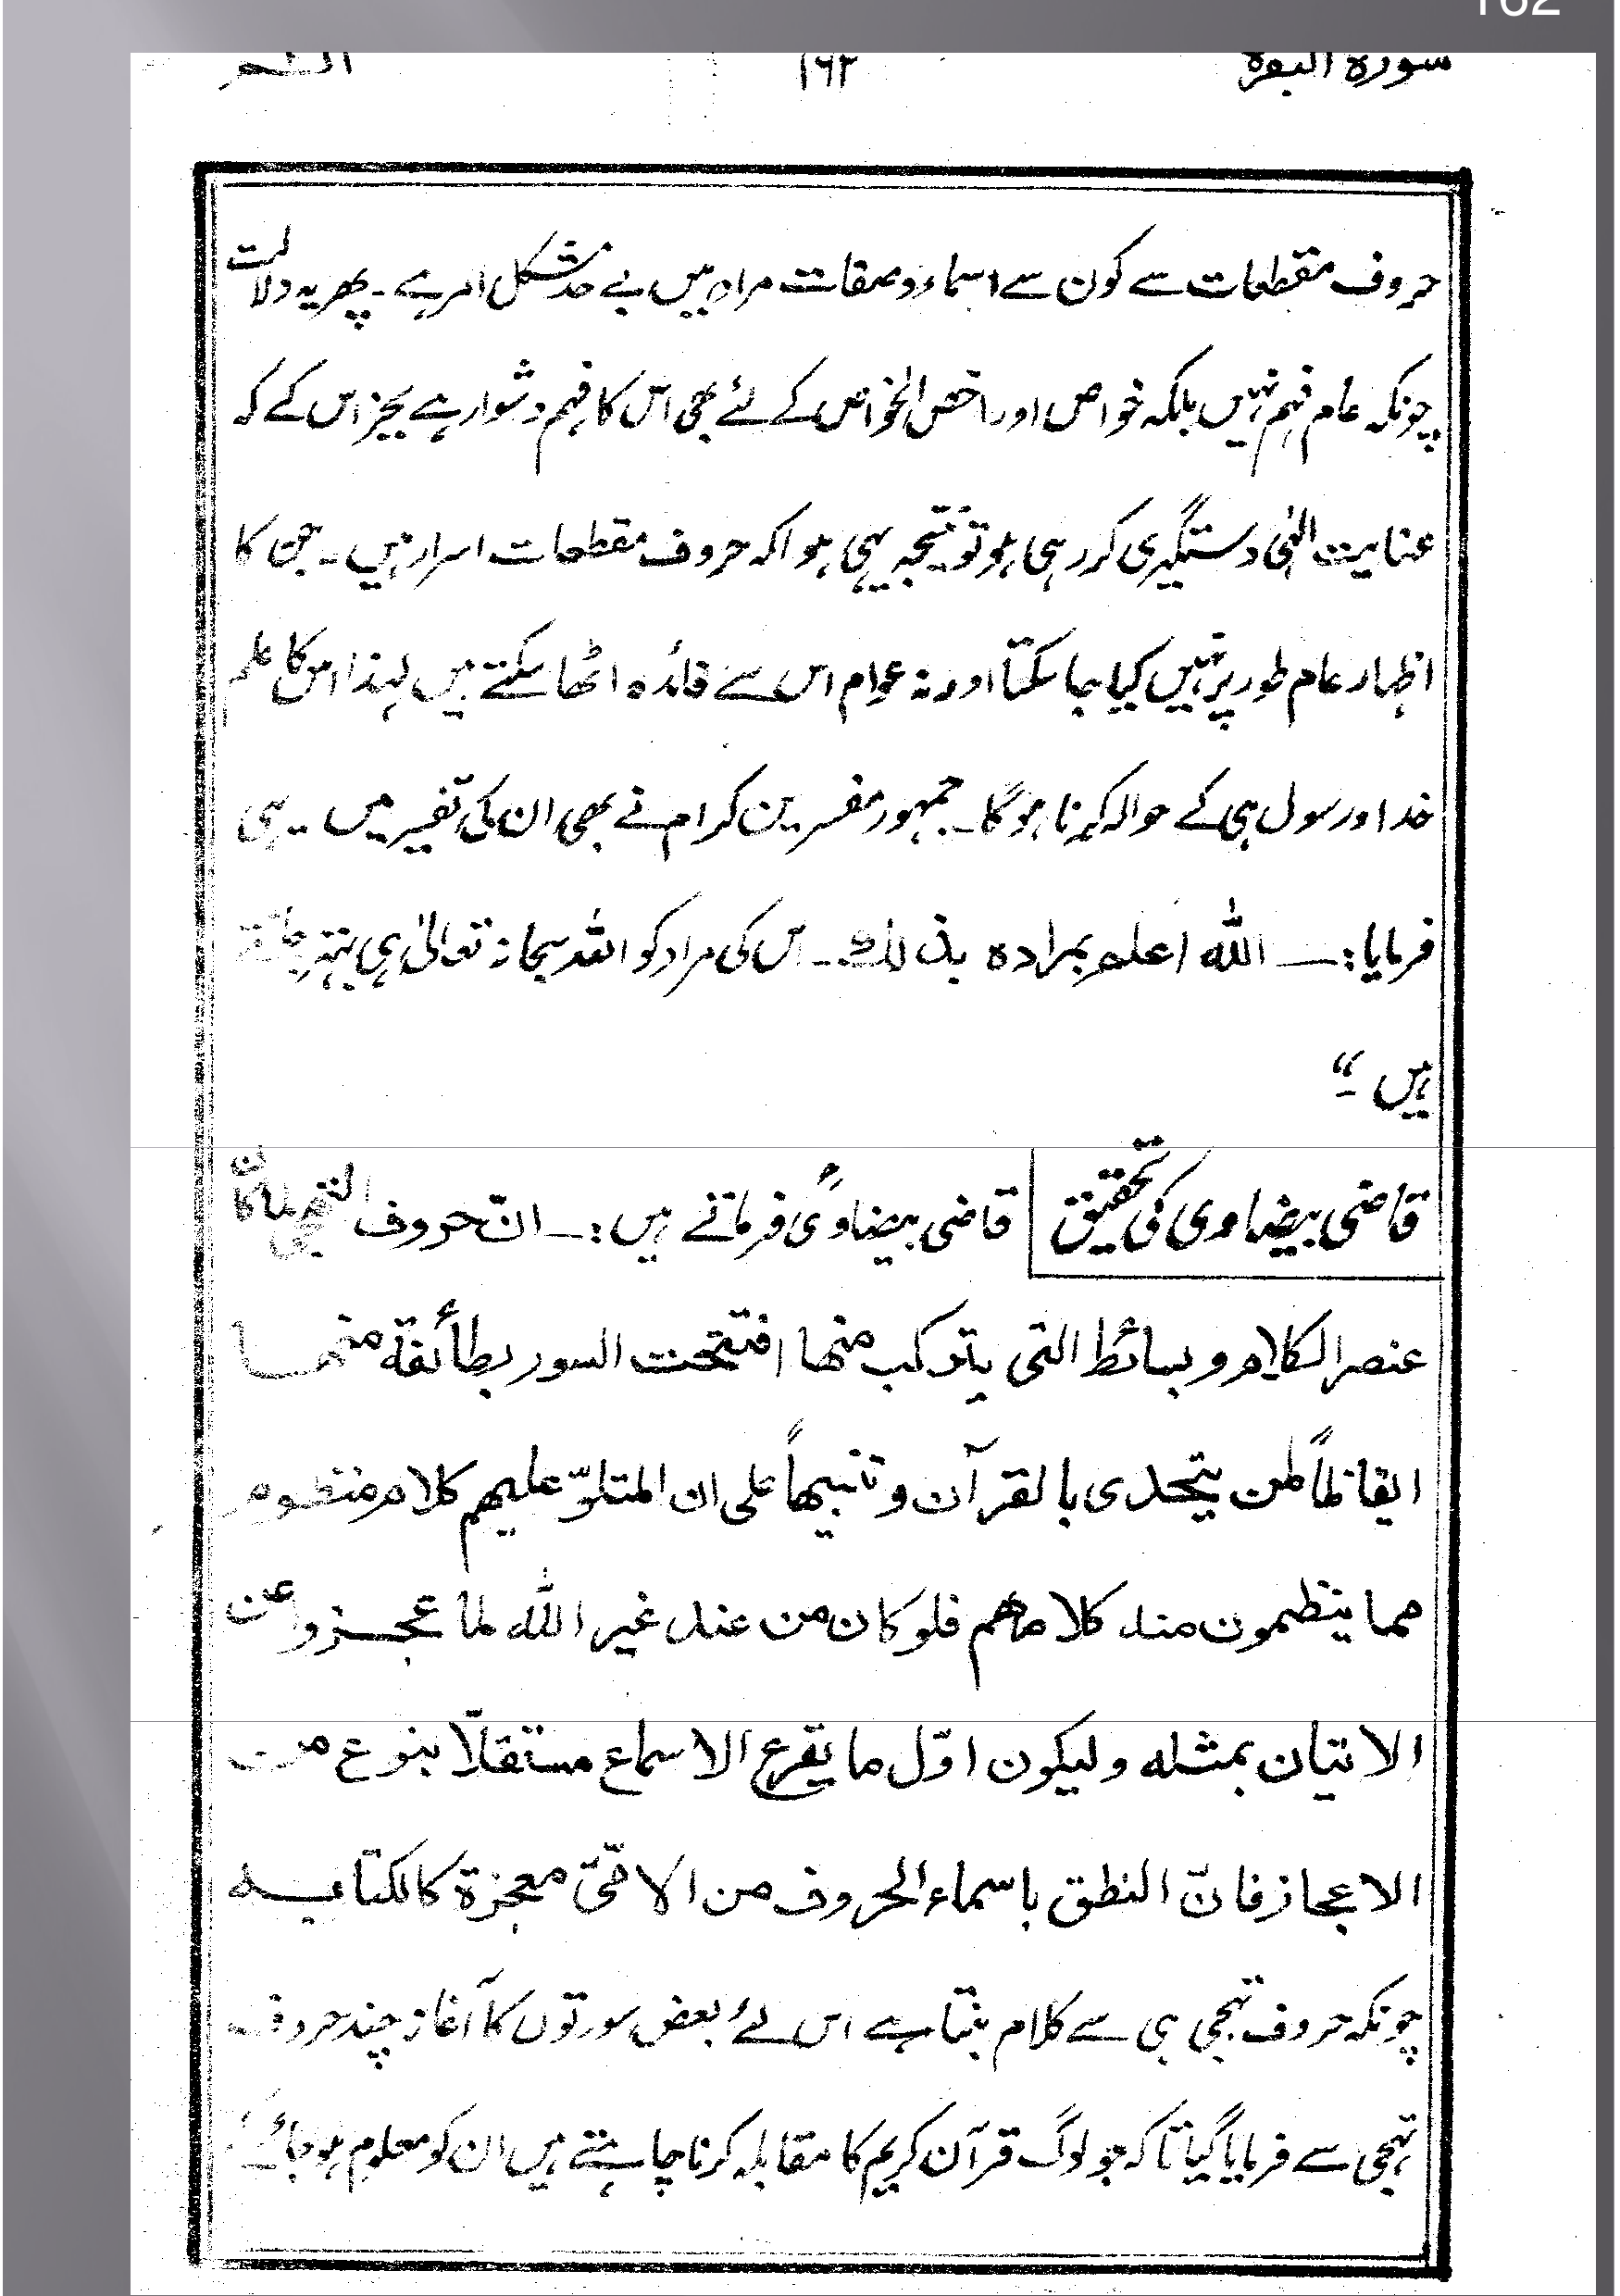 162
سورة البقرة ۱۶۲ الٓمّ
حروف مقطعات سے کون سے اسماء و صفات مراد ہیں بے حد مشکل امر ہے ۔ پھر یہ دلالت
چونکہ عام فہم نہیں بلکہ خواص اور اخص الخواص کے لئے بھی اس کا فہم دشوار ہے بجز اس کے کہ
عنایت الٰہی دستگیری کر رہی ہو تو نتیجہ یہی ہوا کہ حروف مقطعات اسرار ہیں ۔ جن کا
اظہار عام طور پر نہیں کیا جا سکتا اور نہ عوام اس سے فائدہ اٹھا سکتے ہیں لہٰذا اس کا علم
خدا و رسول ہی کے حوالہ کرنا ہوگا ۔ جمہور مفسرین کرام نے بھی ان کی تفسیر میں یہی
فرمایا :۔ الله اعلم بمراده بذالك ۔ اس کی مراد کو اللہ سبحانہ تعالیٰ ہی بہتر جانتے
ہیں ۔“
قاضی بیضاوی کی تحقیق قاضی بیضاویؒ فرماتے ہیں :۔ انّ حروف التهجى لما كان
عنصر الكلام و بسائط التى يتركب منها افتتحت السور بطائفة منها
ايقاظاً لمن يتحدى بالقرآن و تنبيهاً على ان المتلوّ عليهم كلام منظوم
مما ينظمون منه كلامهم فلو كان من عند غير الله لما عجزوا عن
الاتيان بمثله وليكون اوّل ما يقرع الاسماع مستقلاً بنوع من
الاعجاز فانّ النطق باسماء الحروف من الامّيّ معجزة كالكتابة
چونکہ حروف تہجی ہی سے کلام بنتا ہے اس لئے بعض سورتوں کا آغاز چند حروف
تہجی سے فرمایا گیا تا کہ جو لوگ قرآن کریم کا مقابلہ کرنا چاہتے ہیں ان کو معلوم ہو جائے